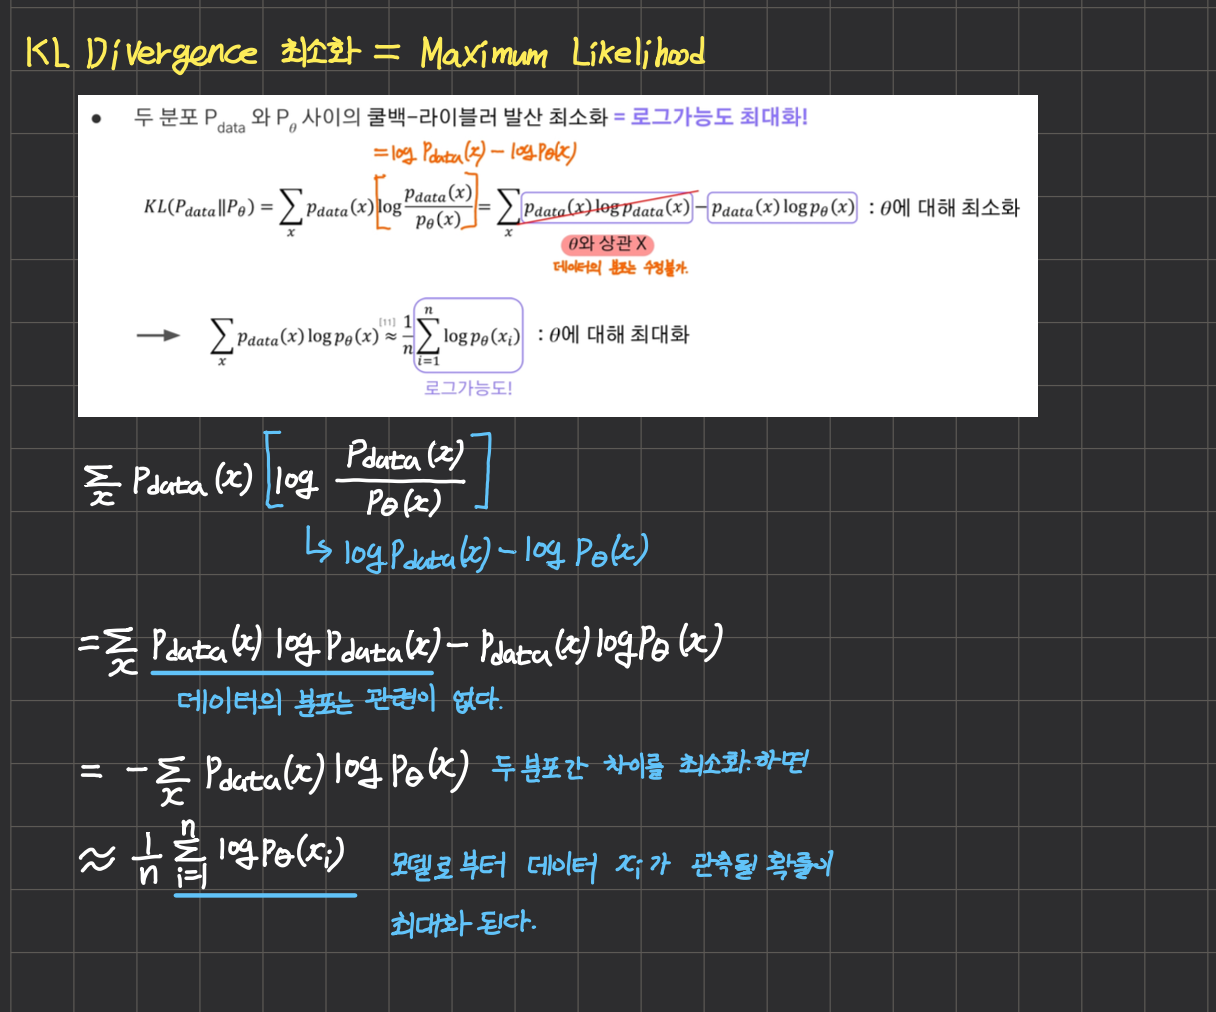 KL Divergence 최소화 = Maximum Likelihood
● 두 분포 P_data 와 P_θ 사이의 쿨백-라이블러 발산 최소화 = 로그가능도 최대화!
= log P_data(x) - log P_θ(x)
KL(P_data||P_θ) = ∑_x p_data(x) [log p_data(x)/p_θ(x)] = ∑_x p_data(x) log p_data(x) - p_data(x) log p_θ(x) : θ에 대해 최소화
θ와 상관 X
데이터의 분포는 수정불가.
→ ∑_x p_data(x) log p_θ(x) ≈ [11] 1/n ∑_{i=1}^n log p_θ(x_i) : θ에 대해 최대화
로그가능도!
∑_x P_data(x) [log P_data(x)/P_θ(x)]
↳ log P_data(x) - log P_θ(x)
= ∑_x P_data(x) log P_data(x) - P_data(x) log P_θ(x)
데이터의 분포는 관련이 없다.
= - ∑_x P_data(x) log P_θ(x) 두 분포간 차이를 최소화 하면
≈ 1/n ∑_{i=1}^n log P_θ(x_i) 모델로 부터 데이터 x_i가 관측될 확률이
최대화 된다.